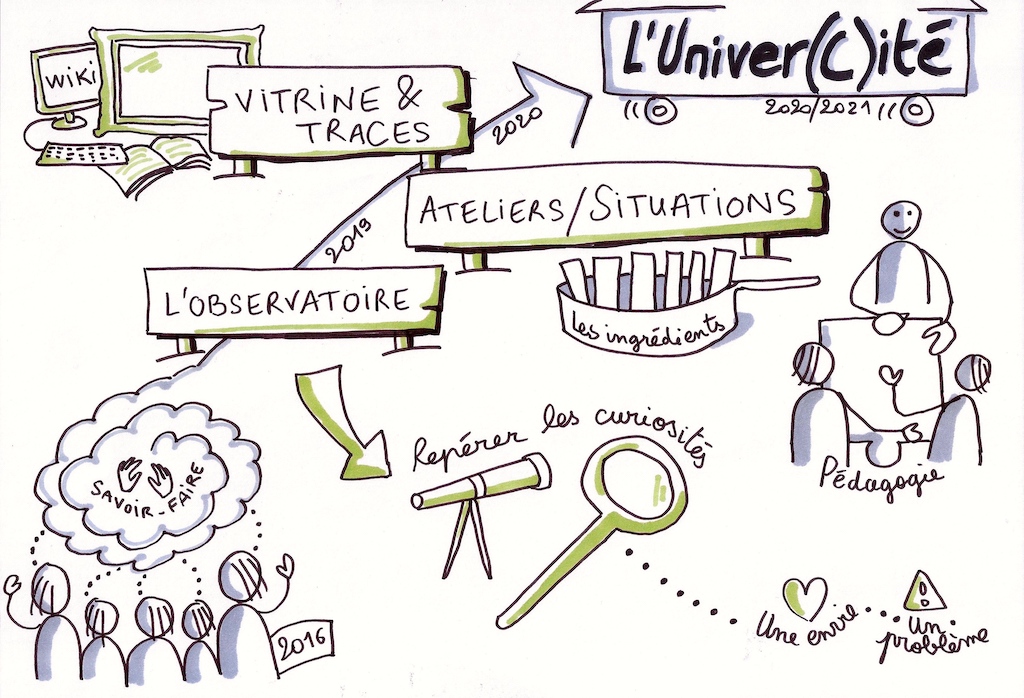 wiki
VITRINE &
TRACES
2020
L'Univer(c)ité
2020/2021
ATELIERS/SITUATIONS
2019
L'OBSERVATOIRE
Les ingrédients
Repérer les curiosités
Pédagogie
SAVOIR-FAIRE
2016
Une envie
un
problème